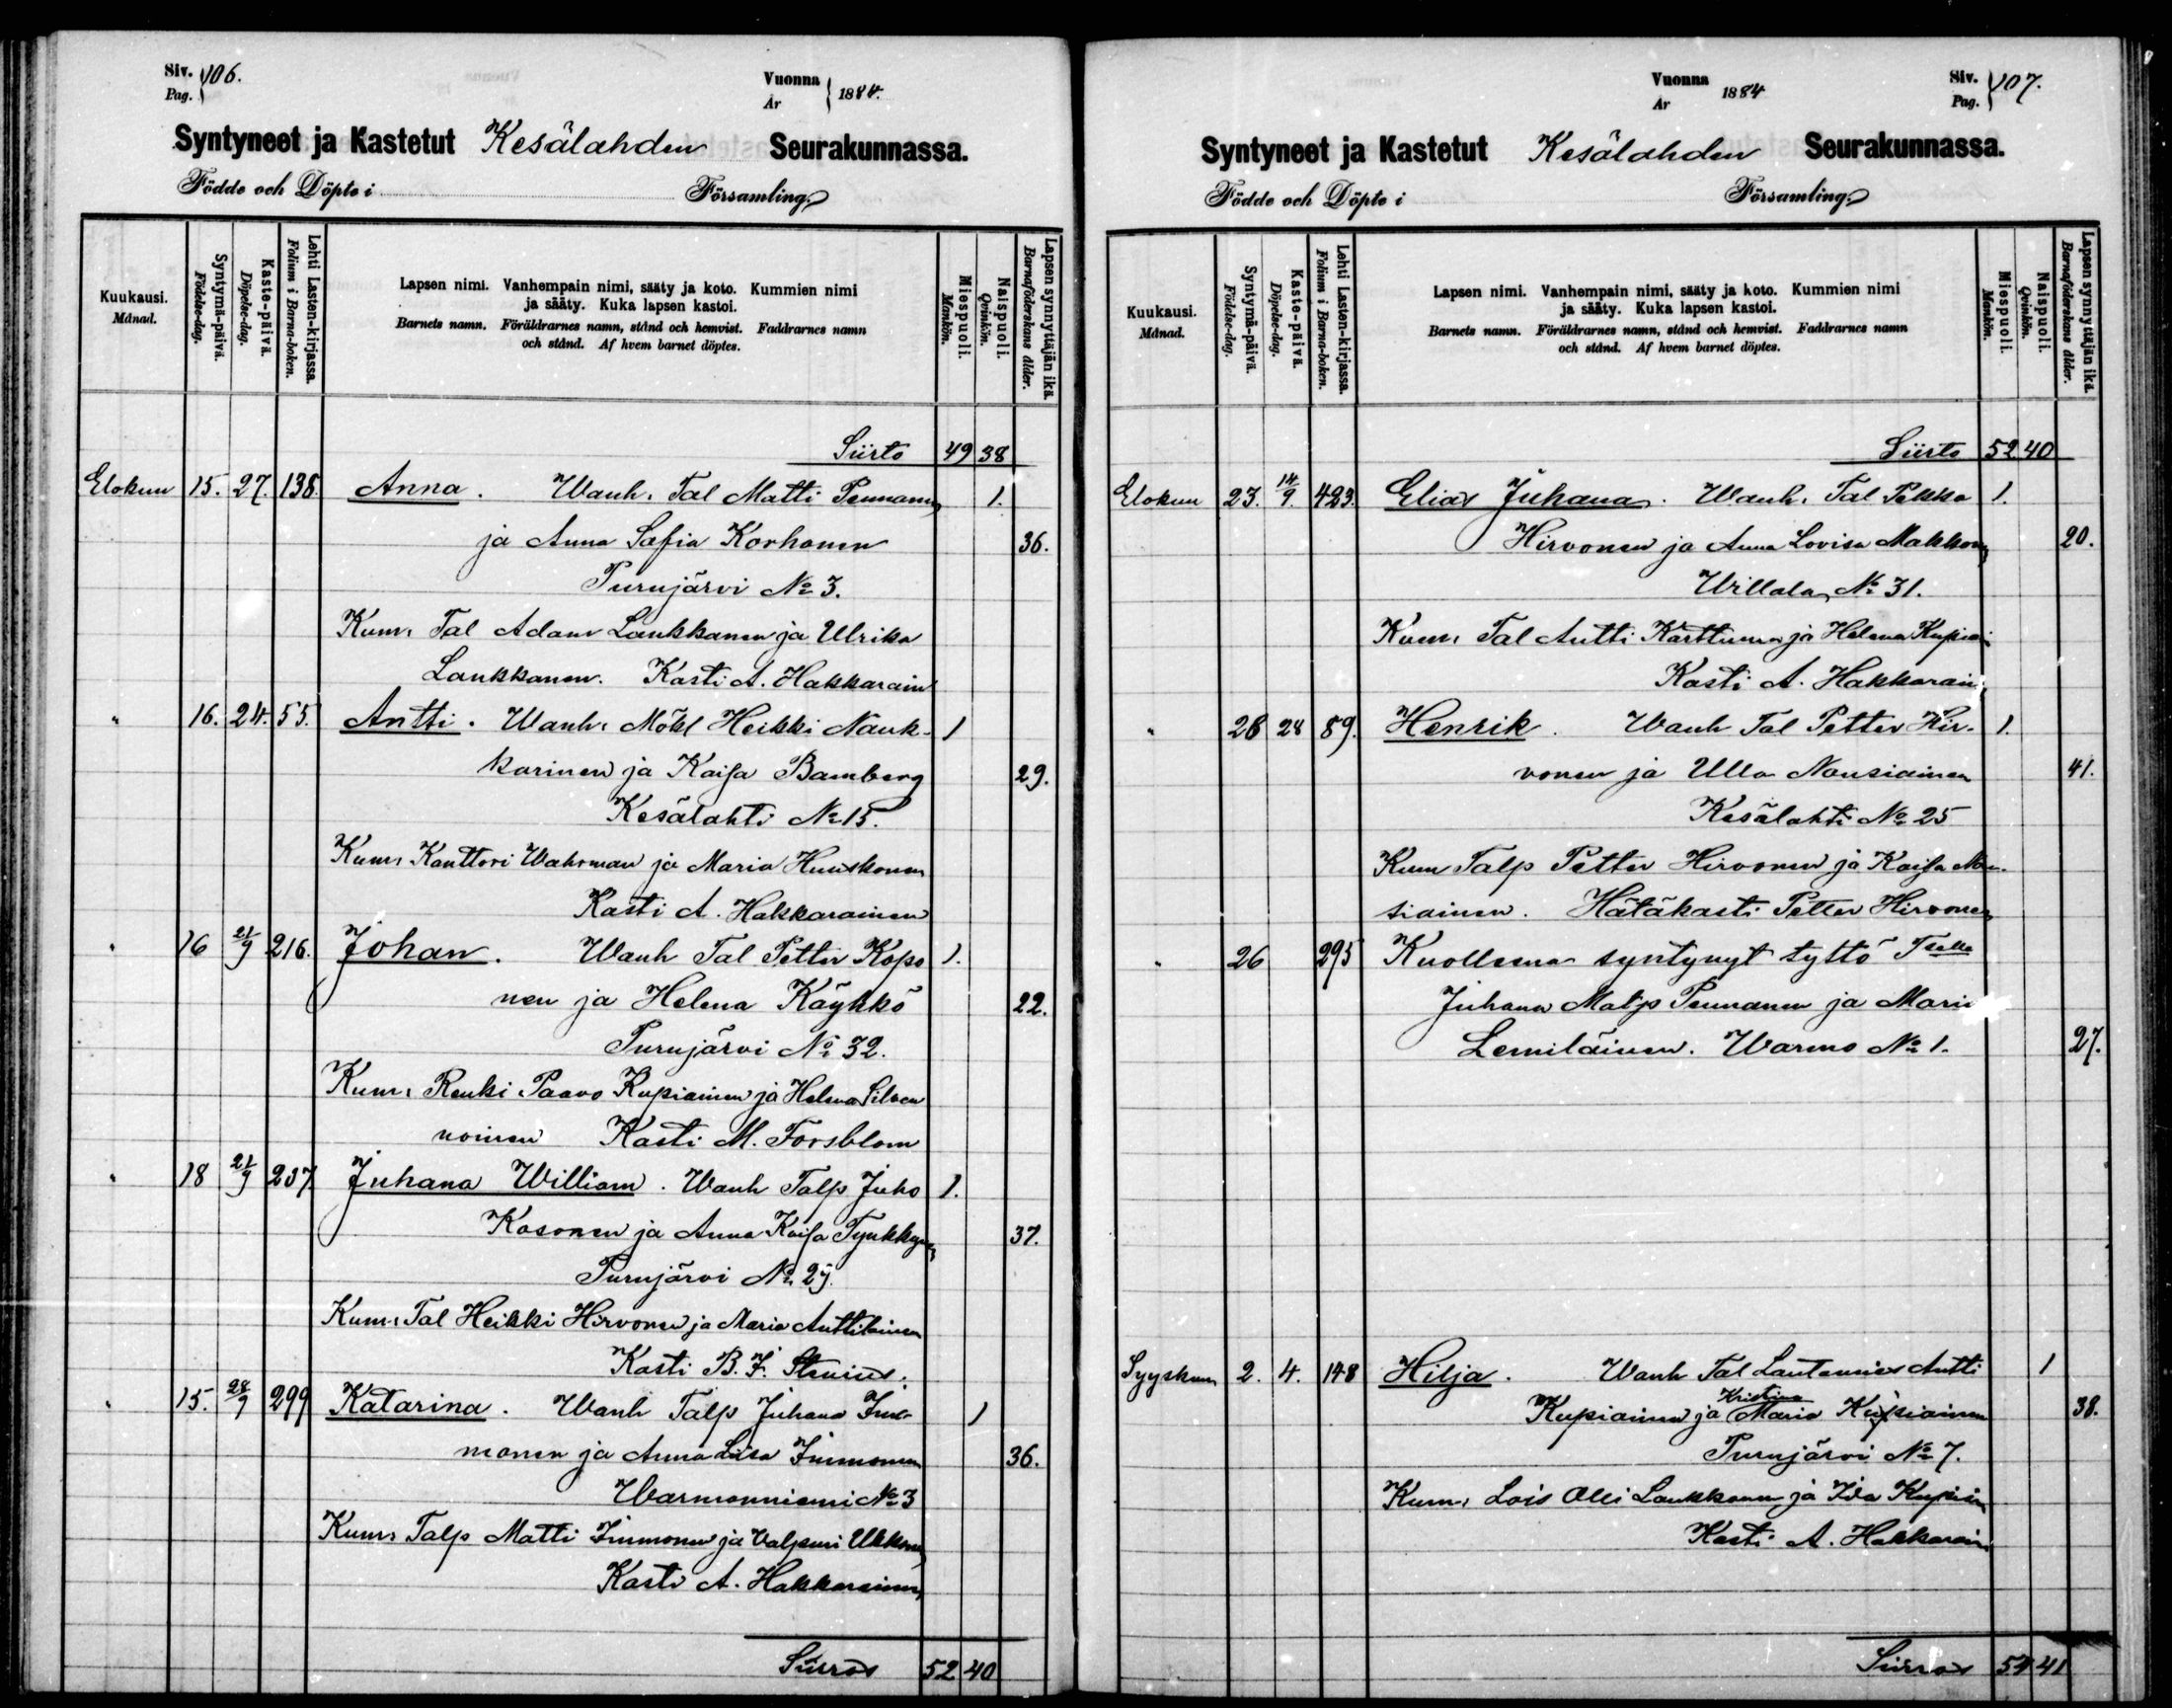 Siv. 106.
Pag.
Vuonna 1884.
År
Syntyneet ja Kastetut Kesälahden Seurakunnassa.
Födde och Döpte i Församling.
Kuukausi.
Månad.
Syntymä-päivä.
Födelse-dag.
Kaste-päivä.
Döpelse-dag.
Lehti Lasten-kirjassa.
Folium i Barna-boken.
Lapsen nimi. Vanhempain nimi, sääty ja koto. Kummien nimi
ja sääty. Kuka lapsen kastoi.
Barnets namn. Föräldrarnes namn, stånd och hemvist. Faddrarnes namn
och stånd. Af hvem barnet döptes.
Miespuoli.
Mankön.
Naispuoli.
Qvinkön.
Lapsen synnyttäjän ikä.
Barnaföderskans ålder.
Siirto 49 38
Elokuu 15. 27. 138. Anna. Wanh. Tal Matti Pennanen 1.
ja Anna Sofia Korhonen 36.
Purujärvi No 3.
Kum. Tal Adam Laukkanen ja Ulrika
Laukkanen. Kasti A. Hakkarain
" 16. 24. 55. Antti. Wanh. Mökl Heikki Nauk- 1
karinen ja Kaisa Bamberg 29.
Kesälahti No 15.
Kum. Kanttori Wahrman ja Maria Huuskonen
Kasti A. Hakkarainen
" 16 21/9 216. Johan. Wanh Tal Petter Kopo 1.
nen ja Helena Käykkö 22.
Purujärvi No 32.
Kum. Renki Paavo Kupiainen ja Helena Silven
noinen Kasti M. Forsblom
" 18 21/9 237 Juhana William. Wanh Talp Juho 1.
Kosonen ja Anna Kaisa Tynkkynen 37.
Purujärvi No 29.
Kum. Tal Heikki Hirvonen ja Maria Anttilainen
Kasti B. F. Stenius.
" 15. 28/9 299 Katarina. Wanh Talp Juhana Im- 1
monen ja Anna Liisa Immonen 36.
Warmonniemi No 3
Kum. Talp Matti Immonen ja Valpuri Ukkonen
Kasti A. Hakkarainen
Siirros 52 40
Vuonna 1884
År
Siv. 107.
Pag.
Syntyneet ja Kastetut Kesälahden Seurakunnassa.
Födde och Döpte i Församling.
Kuukausi.
Månad.
Syntymä-päivä.
Födelse-dag.
Kaste-päivä.
Döpelse-dag.
Lehti Lasten-kirjassa.
Folium i Barna-boken.
Lapsen nimi. Vanhempain nimi, sääty ja koto. Kummien nimi
ja sääty. Kuka lapsen kastoi.
Barnets namn. Föräldrarnes namn, stånd och hemvist. Faddrarnes namn
och stånd. Af hvem barnet döptes.
Miespuoli.
Mankön.
Naispuoli.
Qvinkön.
Lapsen synnyttäjän ikä.
Barnaföderskans ålder.
Siirto 52 40
Elokuu 23. 14/9. 423. Elias Juhana. Wanh. Tal Pekka 1.
Hirvonen ja Anna Lovisa Makkon 20.
Willala No 31.
Kum. Tal Antti Karttunen ja Helena Kupiai
Kasti A. Hakkarain
" 26 28 89. Henrik. Wanh Tal Petter Hir- 1.
vonen ja Ulla Nousiainen 41.
Kesälahti No 25
Kum Talp Petter Hirvonen ja Kaisa Nou-
siainen. Hätäkasti Petter Hirvonen
" 26 295 Kuolleena syntynyt tyttö
Juhana Matp Pennanen ja Maria
Lemiläinen. Warmo No 1. 27.
Syyskuu 2. 4. 148 Hilja. Wanh Tal Lautamies Antti 1
Kristina
Kupiainen ja Maria Kupiainen 38.
Purujärvi No 7.
Kum. Lois Olli Laukkanen ja Ida Kupiain
Kasti A. Hakkarain
Siirros 54 41